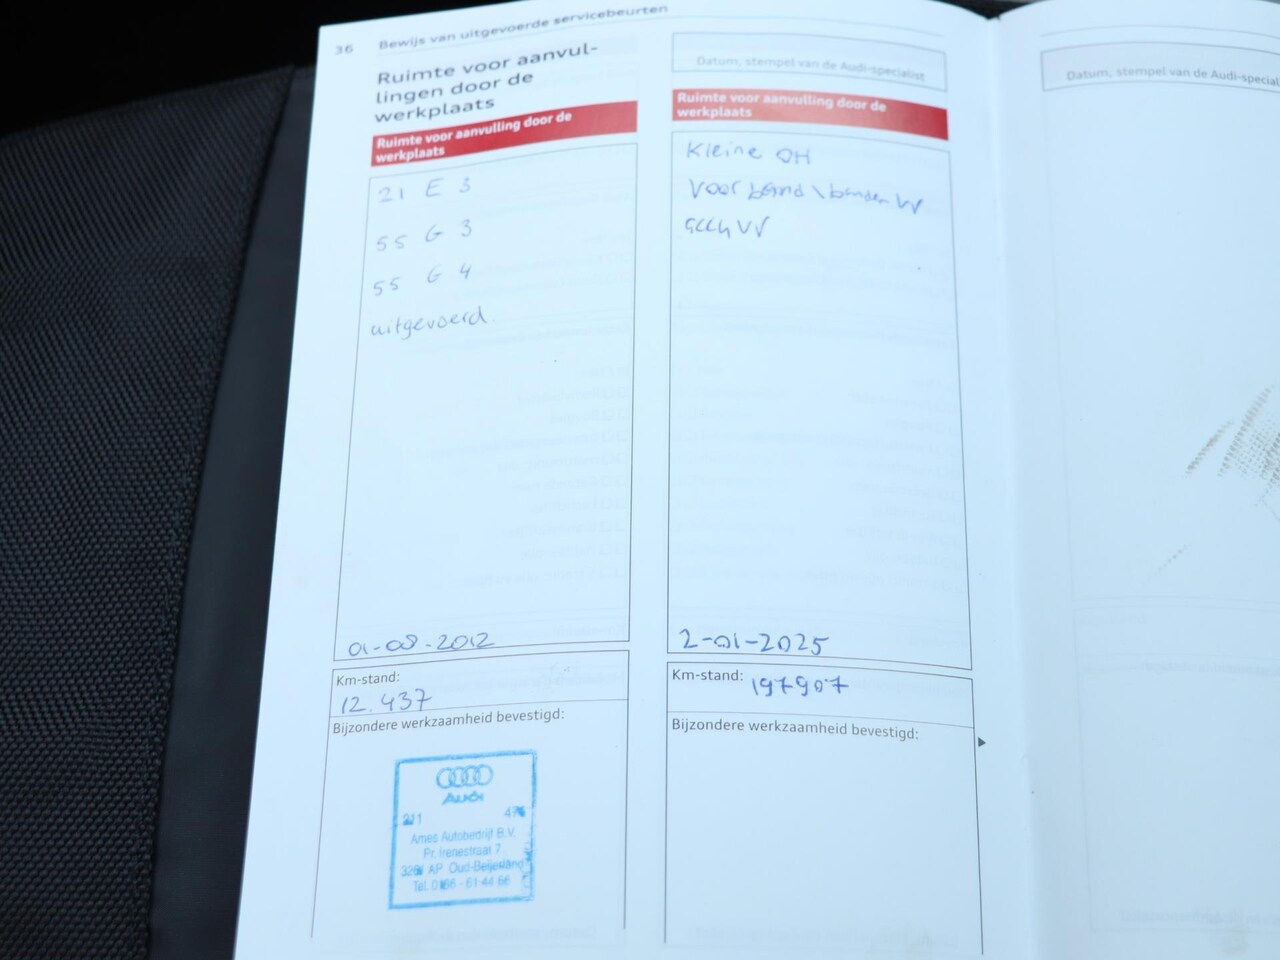 36 Bewijs van uitgevoerde servicebeurten
Ruimte voor aanvul-
lingen door de
werkplaats
Ruimte voor aanvulling door de
werkplaats
21 E 3
55 G 3
55 G 4
uitgevoerd
01-08-2012
Km-stand:
12.437
Bijzondere werkzaamheid bevestigd:
Audi
211
Ames Autobedrijf B.V.
Pr. Irenestraat 7
AP Oud-Beijerland
Tel. 0186 - 61 44 66
Datum, stempel van de Audi-specialist
Ruimte voor aanvulling door de
werkplaats
Kleine OH
2-01-2025
Km-stand: 197907
Bijzondere werkzaamheid bevestigd:
Datum, stempel van de Audi-special